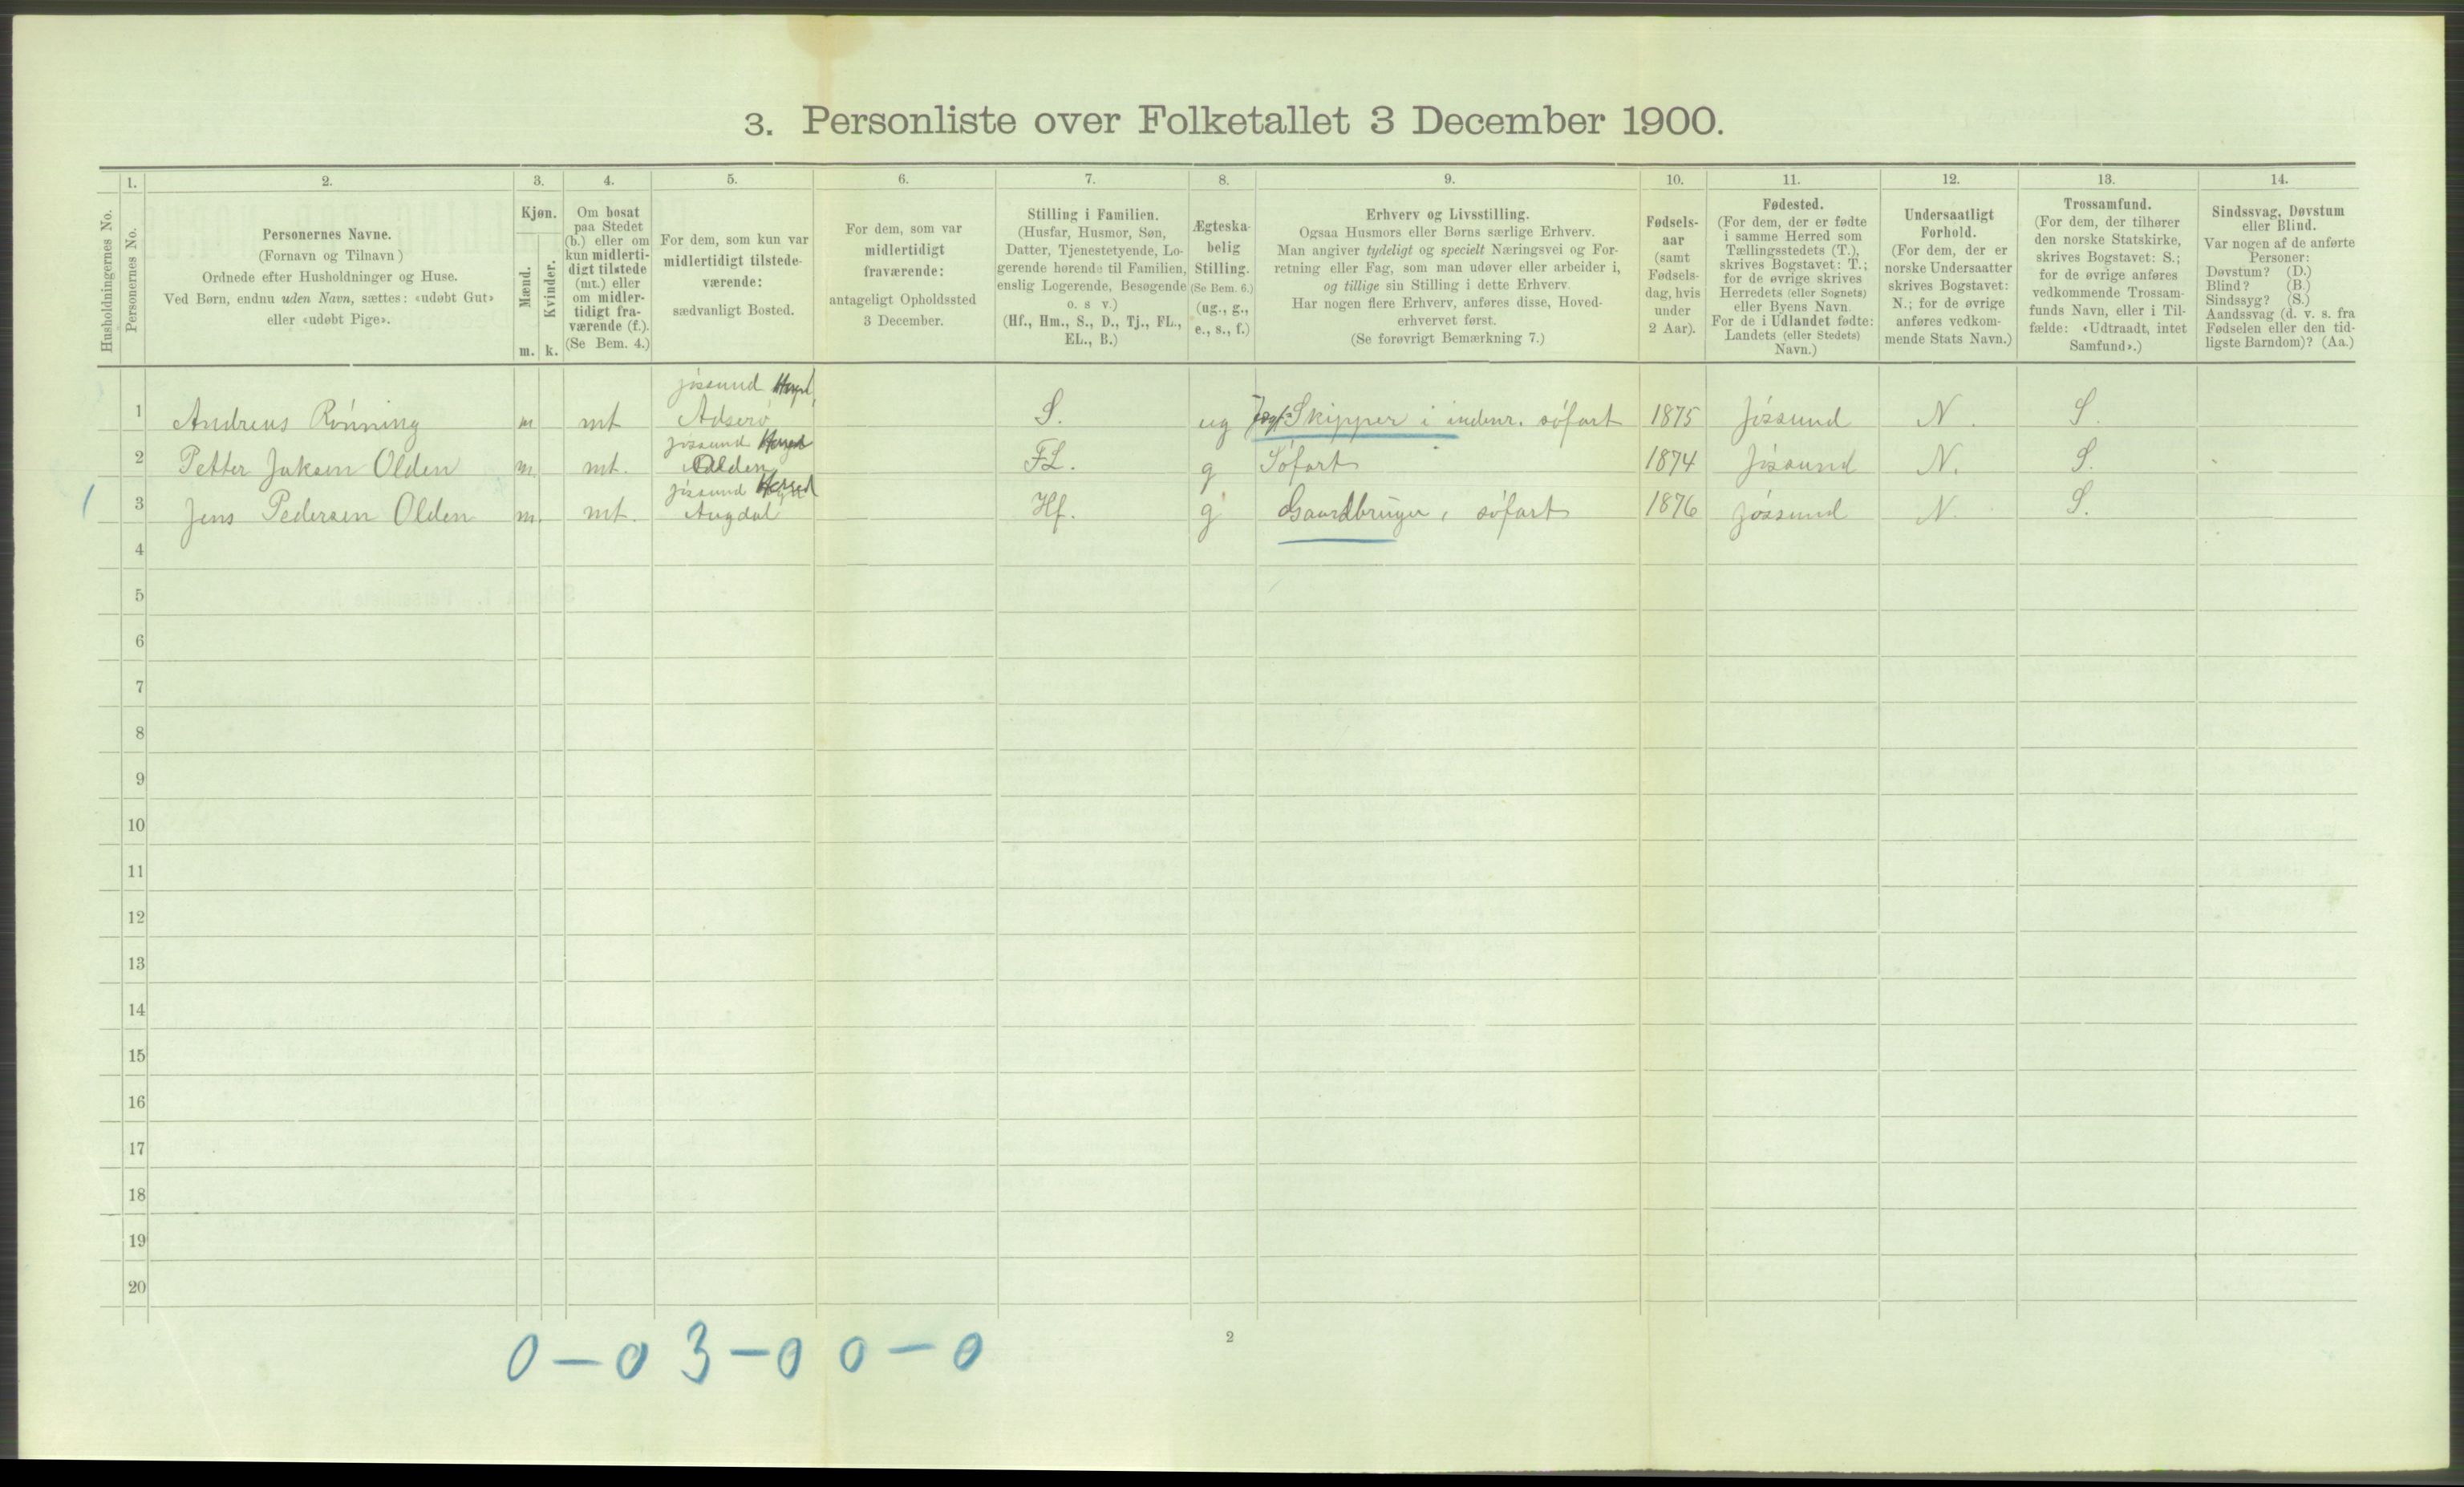 3. Personliste over Folketallet 3 December 1900.
1. 2. 3. 4. 5. 6. 7. 8. 9. 10. 11. 12. 13. 14.
Husholdningernes No.
Personernes No.
Personernes Navne.
(Fornavn og Tilnavn)
Ordnede efter Husholdninger og Huse.
Ved Børn, endnu uden Navn, sættes: «udøbt Gut»
eller «udøbt Pige».
Kjøn.
Mænd.
Kvinder.
m. k.
Om bosat
paa Stedet
(b.) eller om
kun midlerti-
digt tilstede
(mt.) eller
om midler-
tidigt fra-
værende (f.).
(Se Bem. 4.)
For dem, som kun var
midlertidigt tilstede-
værende:
sædvanligt Bosted.
For dem, som var
midlertidigt
fraværende:
antageligt Opholdssted
3 December.
Stilling i Familien.
(Husfar, Husmor, Søn,
Datter, Tjenestetyende, Lo-
gerende hørende til Familien,
enslig Logerende, Besøgende
o. s v.)
(Hf., Hm., S., D., Tj., FL.,
EL., B.)
Ægteska-
belig
Stilling.
(Se Bem. 6.)
(ug., g.,
e., s., f.)
Erhverv og Livsstilling.
Ogsaa Husmors eller Børns særlige Erhverv.
Man angiver tydeligt og specielt Næringsvei og For-
retning eller Fag, som man udøver eller arbeider i,
og tillige sin Stilling i dette Erhverv.
Har nogen flere Erhverv, anføres disse, Hoved-
erhvervet først.
(Se forøvrigt Bemærkning 7.)
Fødsels-
aar
(samt
Fødsels-
dag, hvis
under
2 Aar).
Fødested.
(For dem, der er fødte
i samme Herred som
Tællingsstedets (T.),
skrives Bogstavet: T.;
for de øvrige skrives
Herredets (eller Sognets)
eller Byens Navn.
For de i Udlandet fødte:
Landets (eller Stedets)
Navn.)
Undersaatligt
Forhold.
(For dem, der er
norske Undersaatter
skrives Bogstavet:
N.; for de øvrige
anføres vedkom-
mende Stats Navn.)
Trossamfund.
(For dem, der tilhører
den norske Statskirke,
skrives Bogstavet: S.;
for de øvrige anføres
vedkommende Trossam-
funds Navn, eller i Til-
fælde: «Udtraadt, intet
Samfund».)
Sindssvag, Døvstum
eller Blind.
Var nogen af de anførte
Personer:
Døvstum? (D.)
Blind? (B.)
Sindssyg? (S.)
Aandssvag (d. v. s. fra
Fødselen eller den tid-
ligste Barndom)? (Aa.)
jössund Herred
1 Andreas Rönning m mt Adserö S. ug Jagt Skipper i indenr. söfart 1875 Jössund N. S.
jössund Herred
2 Petter Jaksen Olden m. mt. Olden FL. g Söfart 1874 Jössund N. S.
jössund Herred
1 3 Jens Pedersen Olden m. mt. Augdal Hf. g Gaardbruger, söfart 1876 jössund N. S.
4
5
6
7
8
9
10
11
12
13
14
15
16
17
18
19
20
2
0-0 3-0 0-0